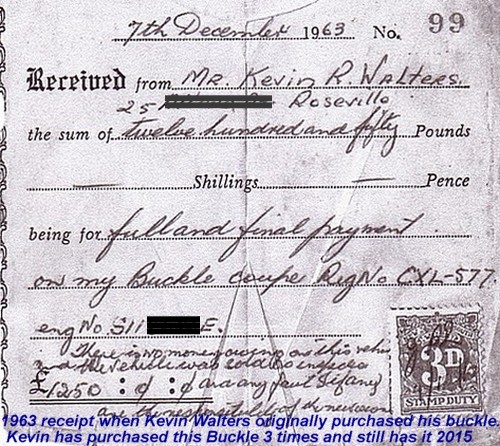 7th December 1963 No. 99
Received from Mr. Kevin R. Walters.
25 Roseville
the sum of twelve hundred and fifty Pounds
— Shillings — Pence
being for full and final payment
on my Buckle coupe Reg No CXL-577.
eng No. S11 E.
There is no money owing on this vehicle
and the vehicle was sold
£1250 : ₫ : ₫ are any fault if any
are the of the new owner
3D
STAMP DUTY
1963 receipt when Kevin Walters originally purchased his buckle
Kevin has purchased this Buckle 3 times and still has it 2015